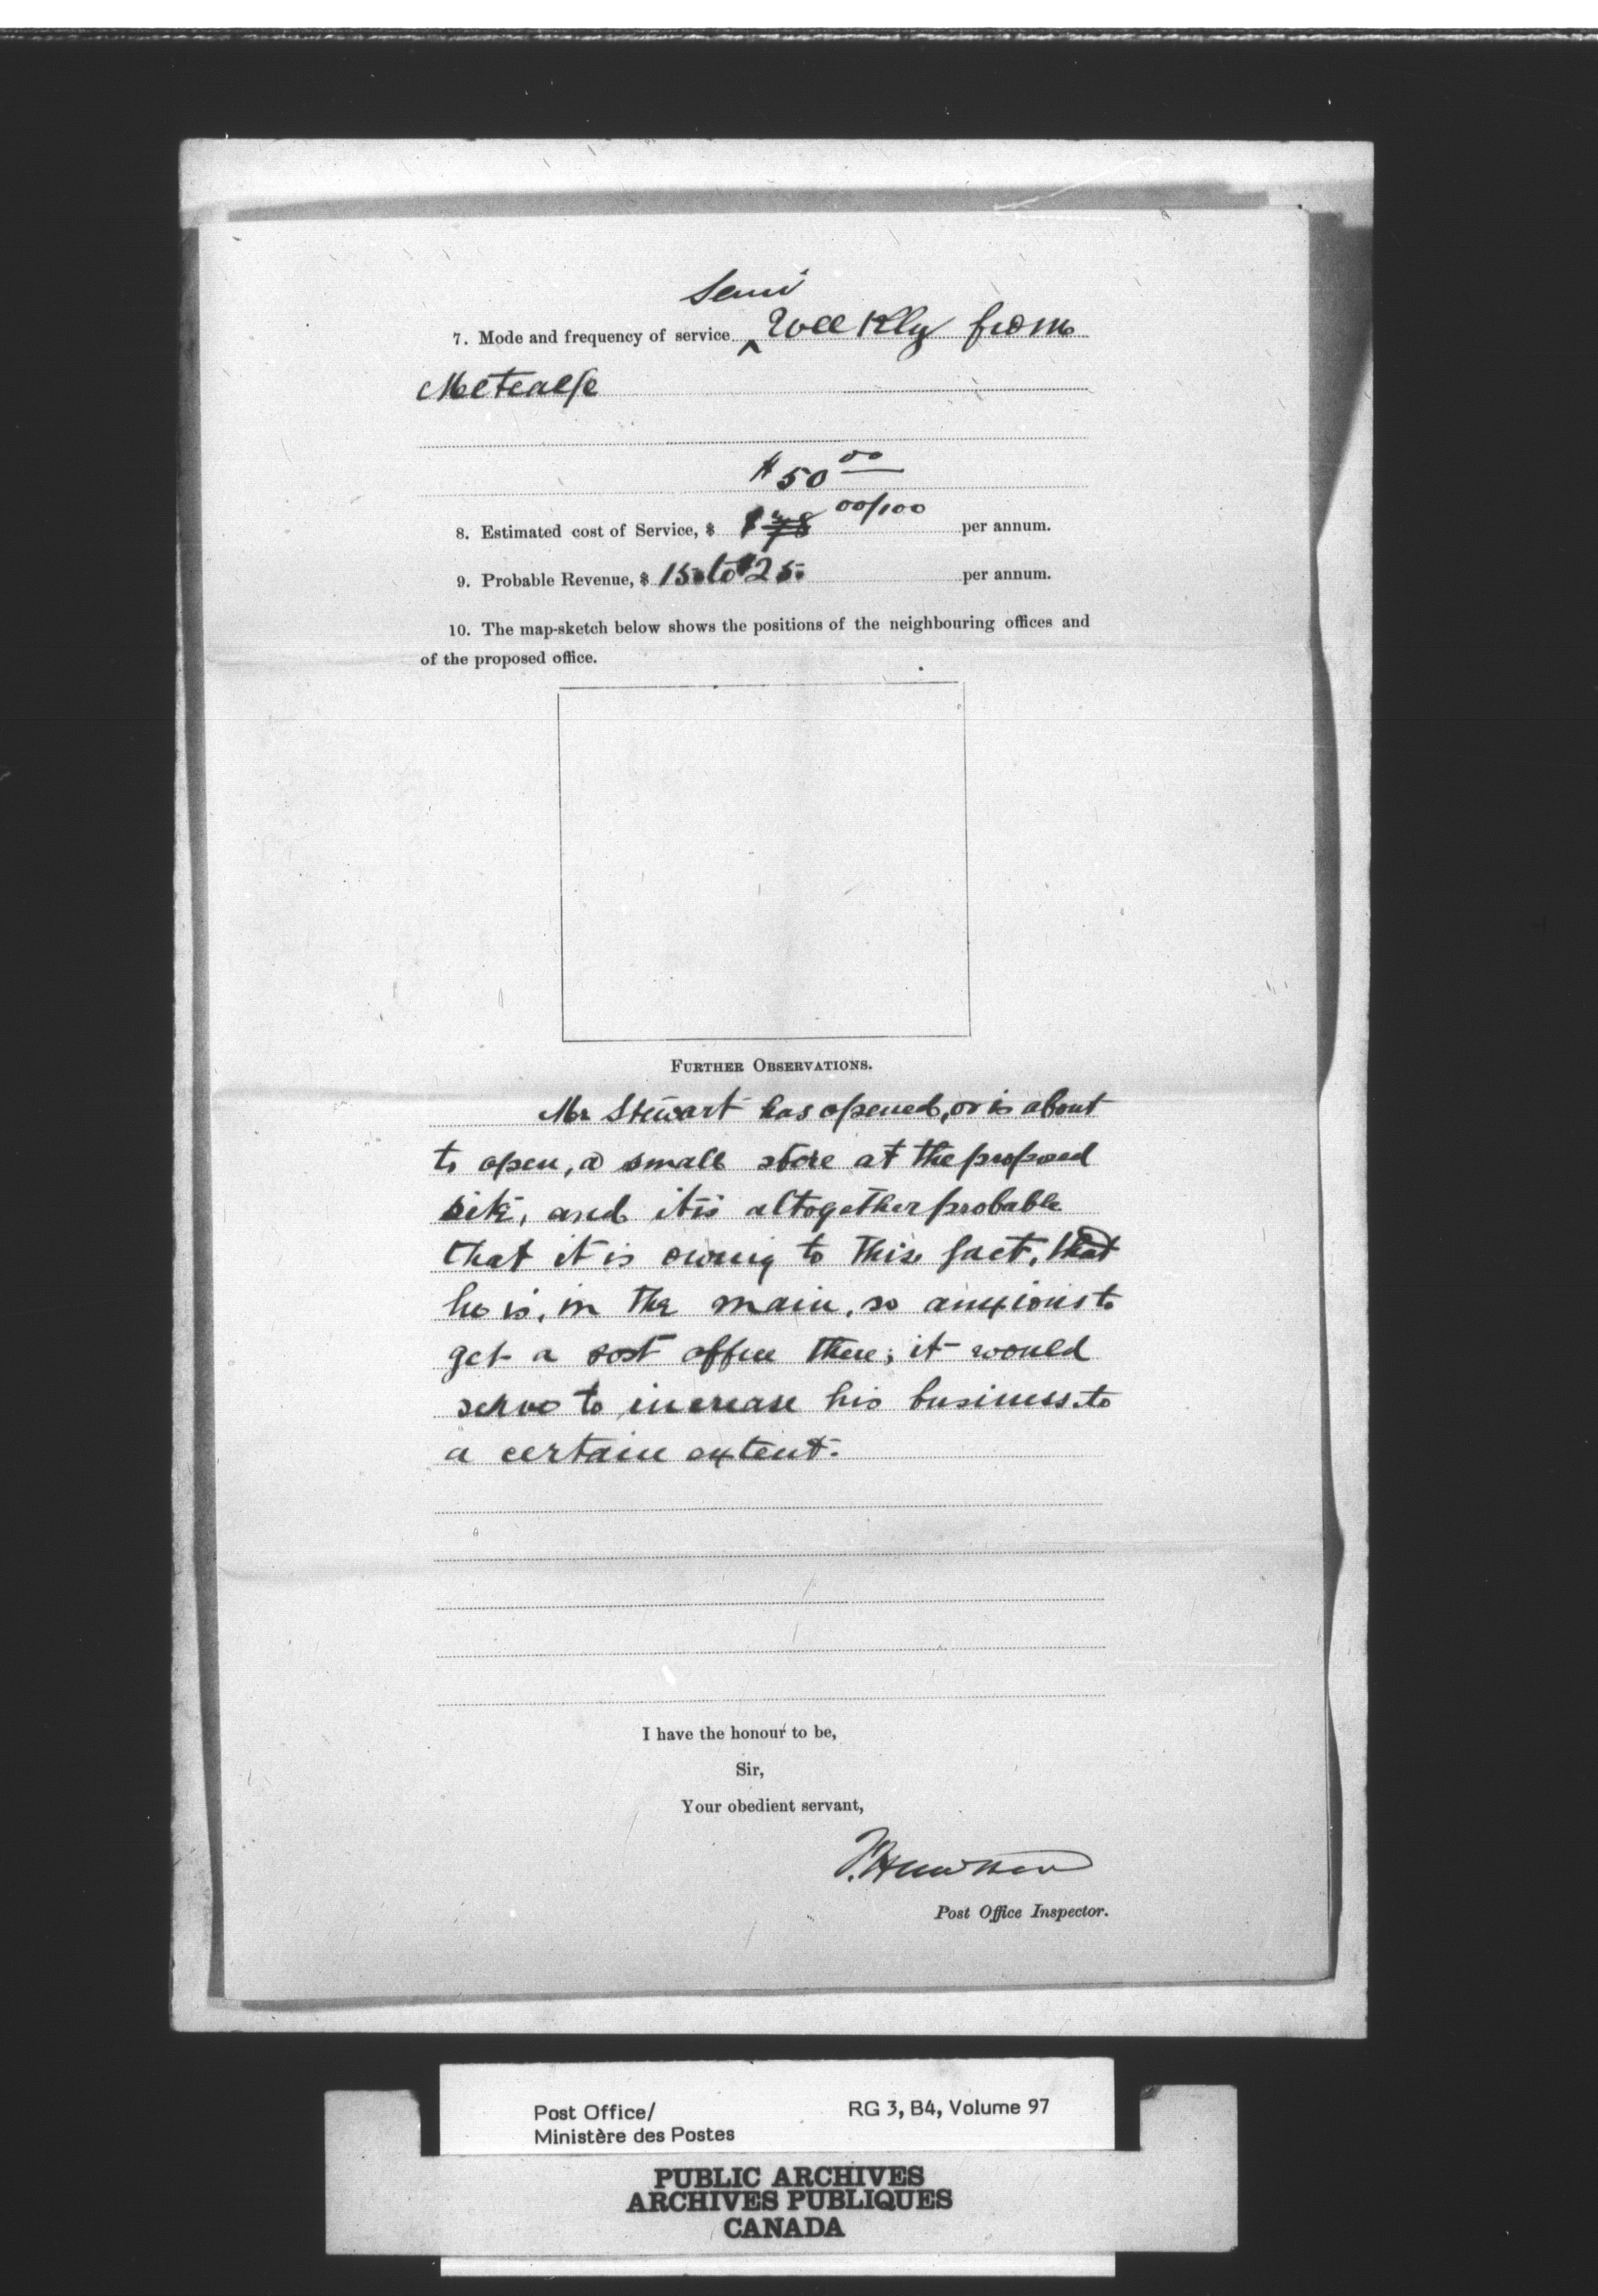 Semi
7. Mode and frequency of service ^ Weekly from
Metcalfe
$50 00
8. Estimated cost of Service, $ 00/100 per annum.
9. Probable Revenue, $ 15. to $25. per annum.
10. The map-sketch below shows the positions of the neighbouring offices and
of the proposed office.
FURTHER OBSERVATIONS.
Mr Stewart has opened, or is about
to open, a small store at the proposed
site, and it is altogether probable
that it is owing to this fact, that
he is, in the main, so anxious to
get a post office there; it would
serve to increase his business to
a certain extent.
I have the honour to be,
Sir,
Your obedient servant,
Post Office Inspector.
Post Office/
Ministère des Postes
RG 3, B4, Volume 97
PUBLIC ARCHIVES
ARCHIVES PUBLIQUES
CANADA